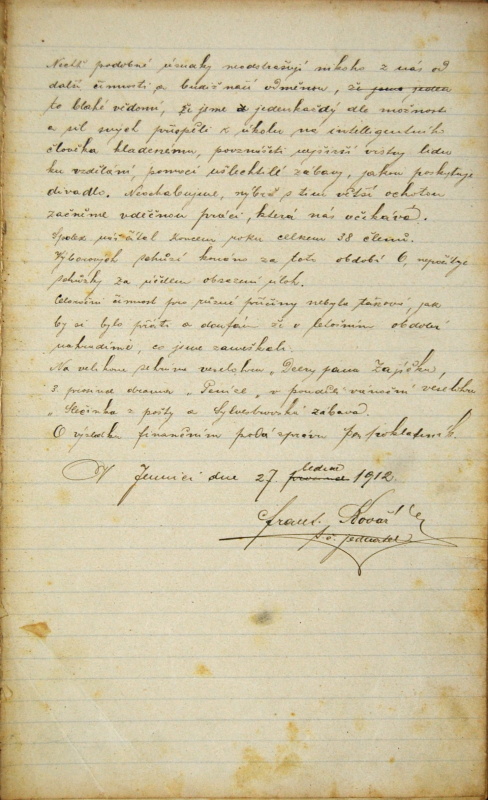 Nechť podobné úsudky neodstrašují nikoho z nás od
další činnosti a budiž naší odměnou, že jsme jeden
to blahé vědomí, že jsme jedenkaždý dle možnosti
a sil svých přispěli k úkolu na intelligentního
člověka kladenému, povznésti nejširší vrstvy lidu
ku vzdělání, pomocí ušlechtilé zábavy, jakou poskytuje
divadlo. Neochabujme, nýbrž s tím větší ochotou
začněme vděčnou práci, která nás očekává.
Spolek náš čítal koncem roku celkem 38 členů.
Výborových schůzí konáno za toto období 6, nepočítaje
schůzky za účelem obsazení úloh.
Celoroční činnost pro různé příčiny nebyla taková, jak
by si bylo přáti a doufám že v letošním období
nahradíme, co jsme zameškali.
Na velikou sehrána veselohra „Dcery pana Zajíčka,
3. prosince drama „Peníze„ v pondělí vánoční veselohra
„Slečinka z pošty a Sylvestrovská zábava.
O výsledku finančním podá zprávu pan pokladník.
V Jenivici dne 27. prosince ledna 1912.
Frant. Kovář
t. č. jednatel